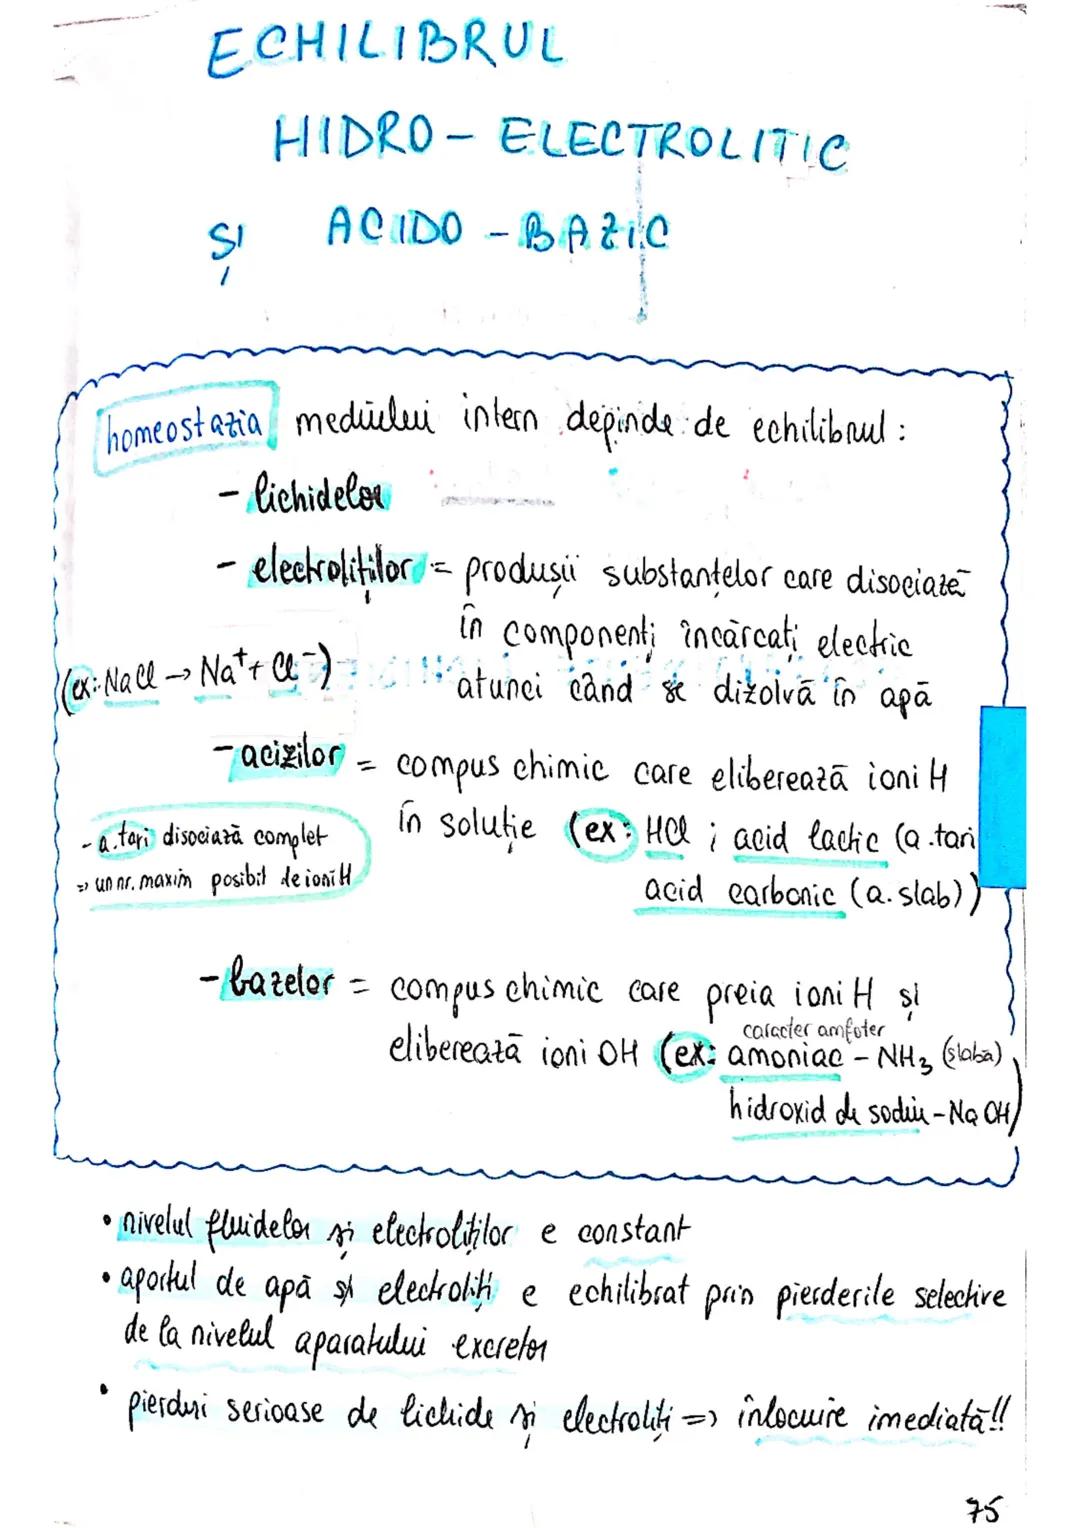 ECHILIBRUL
HIDRO - ELECTROLITIC
ȘI ACIDO - BAZIC
homeostazia mediului intern depinde de echilibrul :
- lichidelor
- electroliților = produșii substanțelor care disociază
în componenți încărcați electric
(ex: NaCl → Na⁺ + Cl⁻)
atunci când se dizolvă în apă
- acizilor = compus chimic care eliberează ioni H
în soluție (ex: HCl ; acid lactic (a. tari
acid carbonic (a. slab))
- a. tari disociază complet
=> un nr. maxim posibil de ioni H
- bazelor = compus chimic care preia ioni H și
caracter amfoter
eliberează ioni OH (ex: amoniac - NH₃ (slabă)
hidroxid de sodiu - NaOH)
• nivelul fluidelor și electroliților e constant
• aportul de apă și electroliți e echilibrat prin pierderile selective
de la nivelul aparatului excretor
• pierduri serioase de lichide și electroliți => înlocuire imediată!!
75